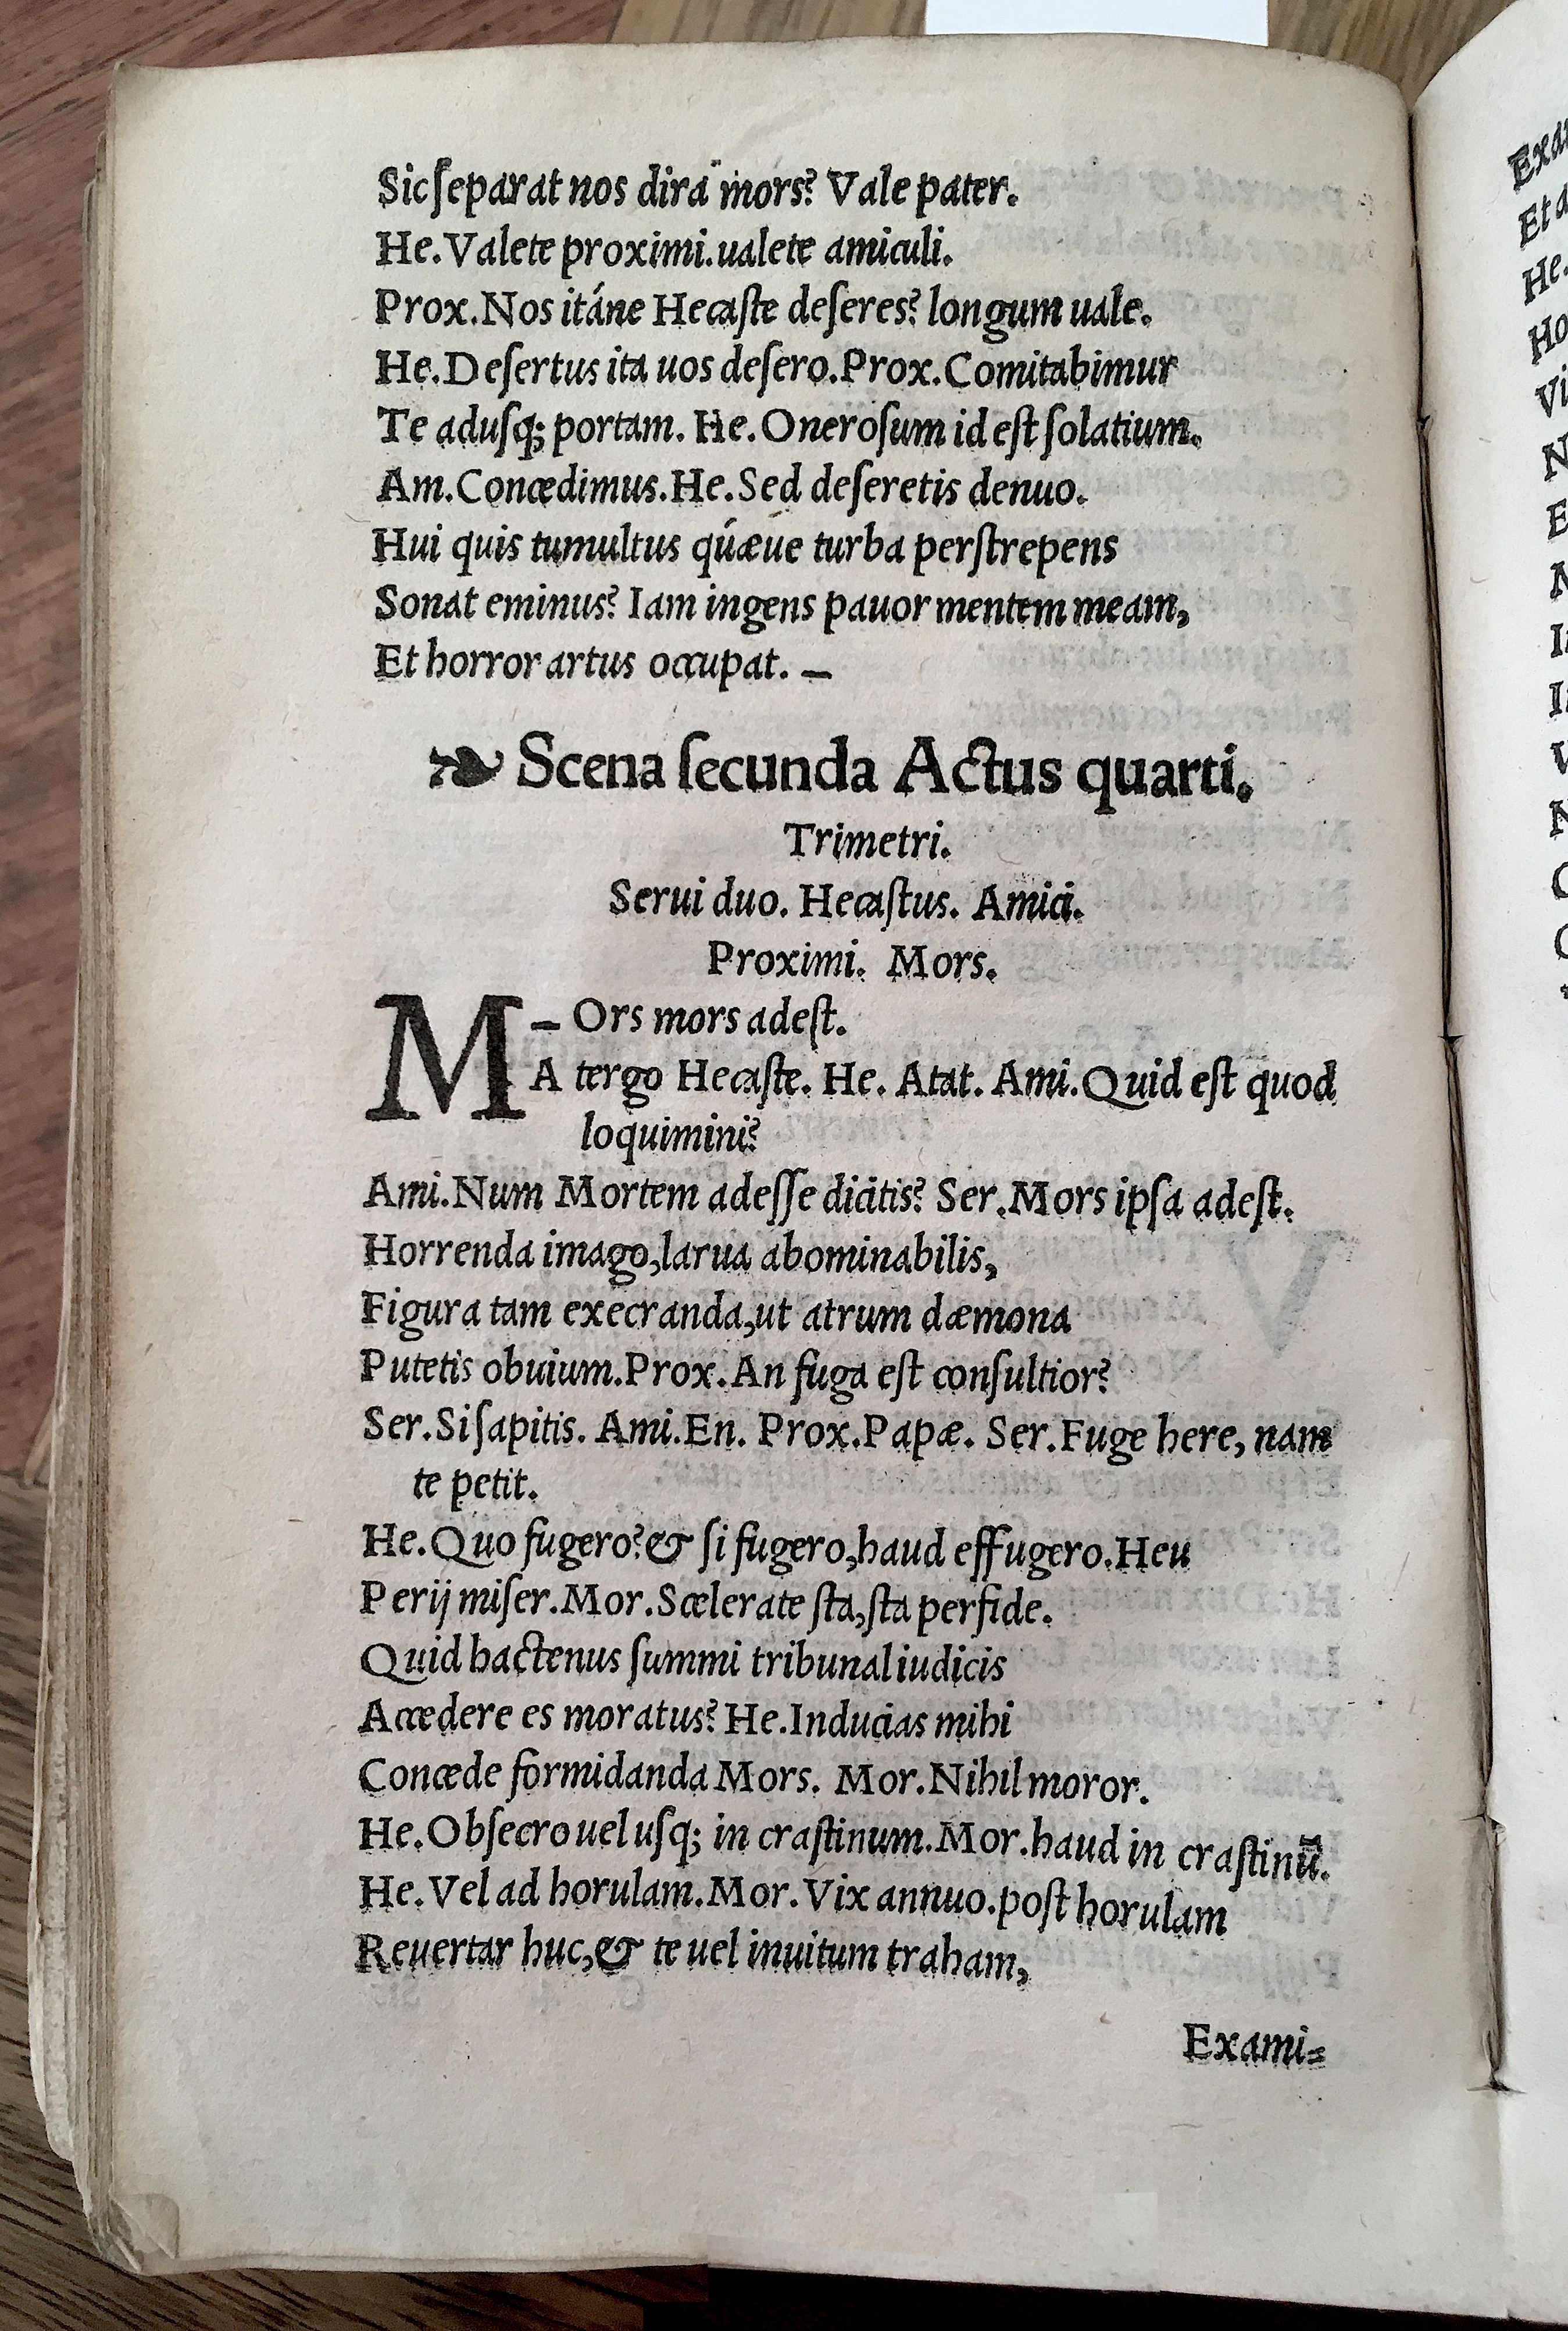 Sic ſeparat nos dira mors? Vale pater.
He. Valete proximi. ualete amiculi.
Prox. Nos itáne Hecaſte deſeres? longum uale.
He. Deſertus ita uos deſero. Prox. Comitabimur
Te aduſq; portam. He. Oneroſum id eſt ſolatium.
Am. Concedimus. He. Sed deſeretis denuo.
Hui quis tumultus quǽue turba perſtrepens
Sonat eminus? Iam ingens pauor mentem meam,
Et horror artus occupat. —
❧ Scena ſecunda Actus quarti.
Trimetri.
Serui duo. Hecaſtus. Amici.
Proximi. Mors.
M — Ors mors adeſt.
A tergo Hecaſte. He. Atat. Ami. Quid eſt quod
loquimini?
Ami. Num Mortem adeſſe dicitis? Ser. Mors ipſa adeſt.
Horrenda imago, larua abominabilis,
Figura tam execranda, ut atrum dæmona
Putetis obuium. Prox. An fuga eſt conſultior?
Ser. Si ſapitis. Ami. En. Prox. Papæ. Ser. Fuge here, nam
te petit.
He. Quo fugero? & ſi fugero, haud effugero. Heu
Perij miſer. Mor. Scelerate ſta, ſta perfide.
Quid hactenus ſummi tribunal iudicis
Accedere es moratus? He. Inducias mihi
Concede formidanda Mors. Mor. Nihil moror.
He. Obſecro uel uſq; in craſtinum. Mor. haud in craſtinū.
He. Vel ad horulam. Mor. Vix annuo. poſt horulam
Reuertar huc, & te uel inuitum traham,
Exami=
Et
He.
Ho
Vi